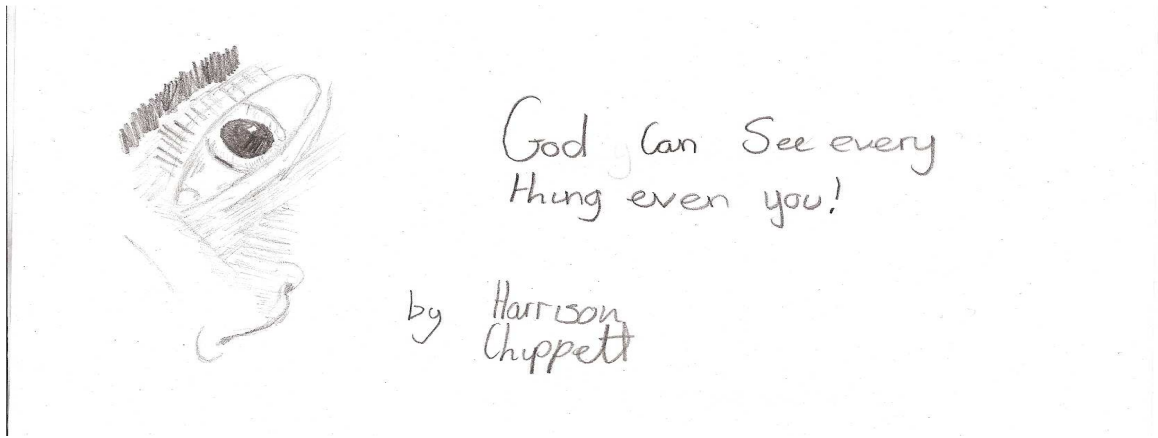 God Can See every
thing even you!
by Harrison
Chippett